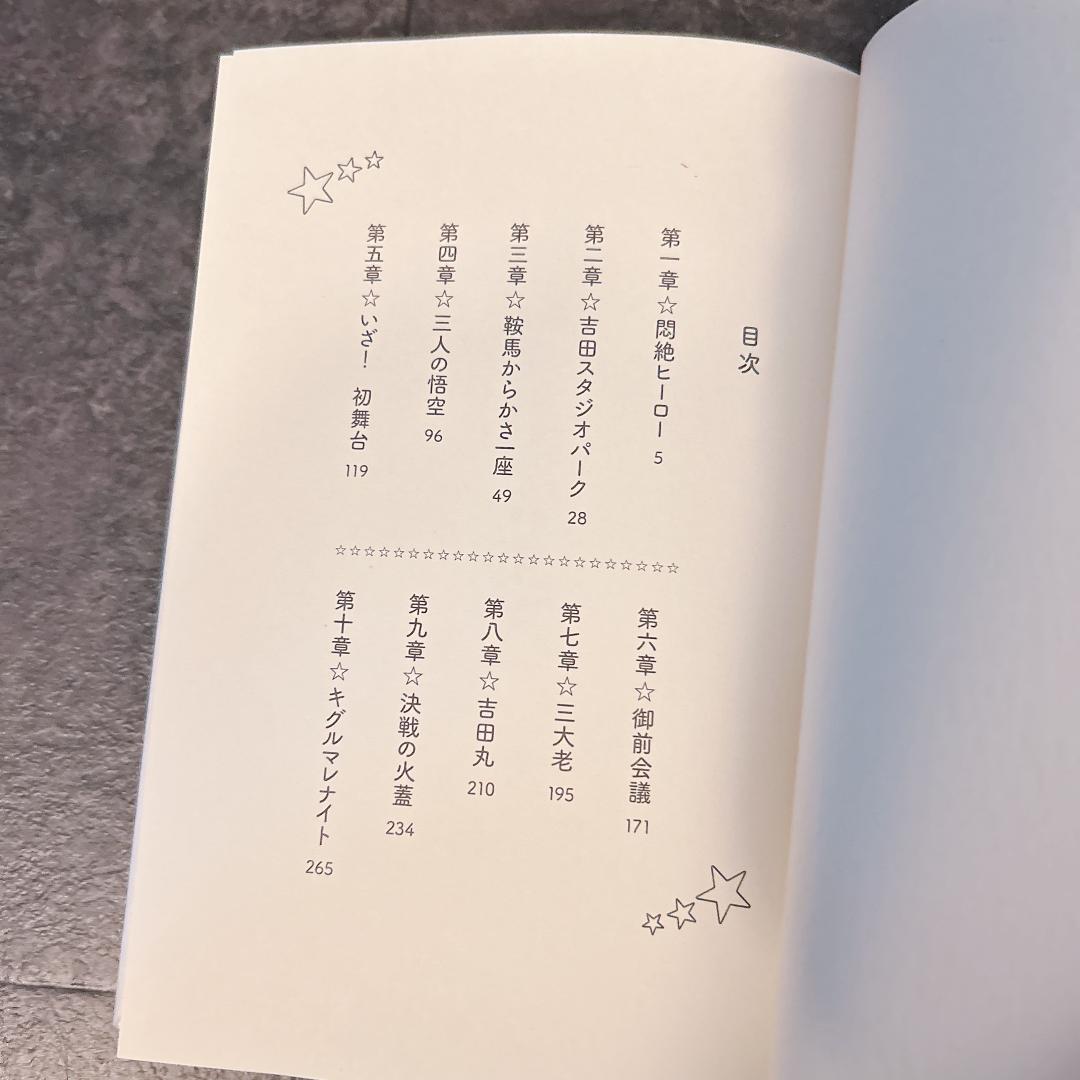 目次
第一章☆悶絶ヒーロー 5
第二章☆吉田スタジオパーク 28
第三章☆鞍馬からかさ一座 49
第四章☆三人の悟空 96
第五章☆いざ！　初舞台 119
☆☆☆☆☆☆☆☆☆☆☆☆☆☆☆☆☆☆☆☆☆☆☆☆
第六章☆御前会議 171
第七章☆三大老 195
第八章☆吉田丸 210
第九章☆決戦の火蓋 234
第十章☆キグルマレナイト 265